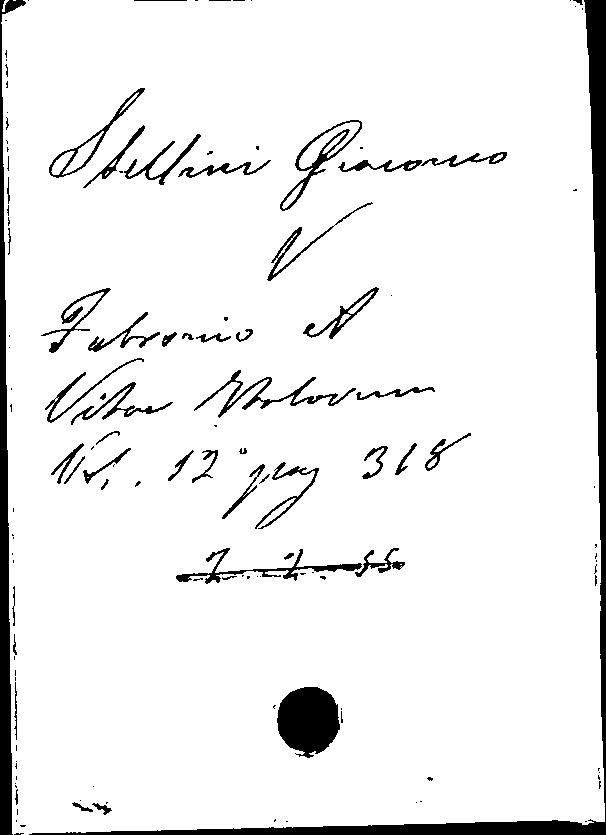 Stellini Giacomo
V
Fabronio A
Vitae Italorum
Vol. 12° pag 318
2. 2. 55